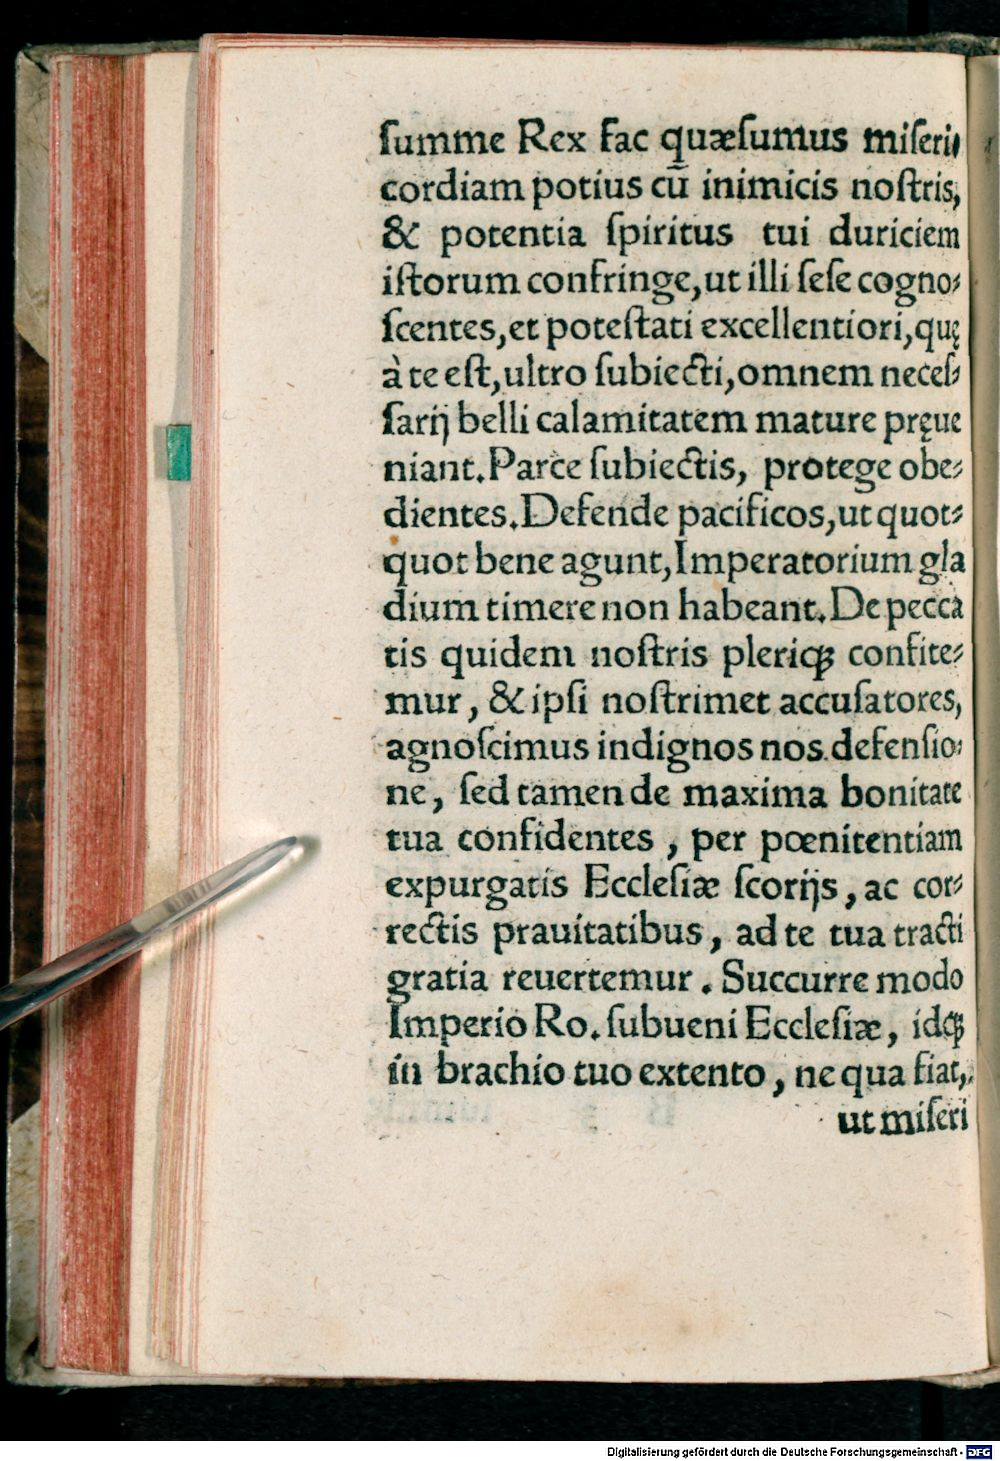 ſumme Rex fac quæſumus miſeri⸗
cordiam potius cū inimicis noſtris,
& potentia ſpiritus tui duriciem
iſtorum confringe,ut illi ſeſe cogno⸗
ſcentes,et poteſtati excellentiori,quę
à te eſt,ultro ſubiecti,omnem neceſ⸗
ſarij belli calamitatem mature pręue
niant.Parce ſubiectis, protege obe⸗
dientes.Defende pacificos,ut quot⸗
quot bene agunt,Imperatorium gla
dium timere non habeant.De pecca
tis quidem noſtris pleriqꝫ confite⸗
mur, & ipſi noſtrimet accuſatores,
agnoſcimus indignos nos defenſio⸗
ne, ſed tamen de maxima bonitate
tua confidentes, per pœnitentiam
expurgatis Eccleſiæ ſcorijs, ac cor⸗
rectis prauitatibus, ad te tua tracti
gratia reuertemur. Succurre modo
Imperio Ro. ſubueni Eccleſiæ, idqꝫ
in brachio tuo extento, ne qua fiat,
ut miſeri
Digitalisierung gefördert durch die Deutsche Forschungsgemeinschaft - DFG